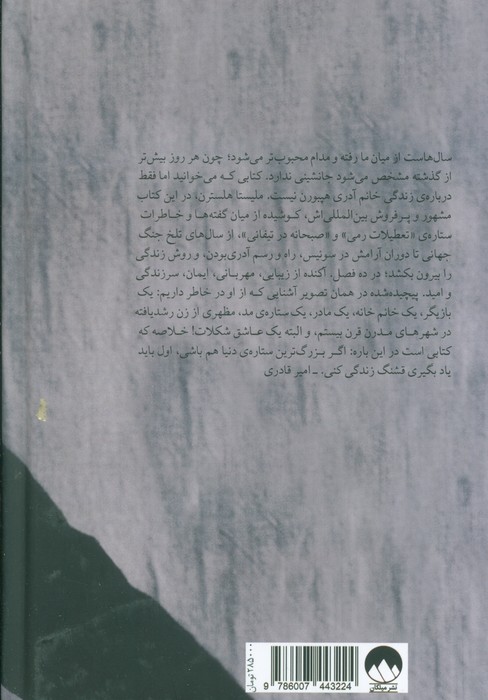 سال‌هاست از میان ما رفته و مدام محبوب‌تر می‌شود؛ چون هر روز بیش‌تر
از گذشته مشخص می‌شود جانشینی ندارد. کتابی که می‌خوانید اما فقط
درباره‌ی زندگی خانم آدری هیپورن نیست. ملیسا هلسترن، در این کتاب
مشهور و پرفروش بین‌المللی‌اش، کوشیده از میان گفته‌ها و خاطرات
ستاره‌ی «تعطیلات رمی» و «صبحانه در تیفانی»، از سال‌های تلخ جنگ
جهانی تا دوران آرامش در سوئیس، راه و رسم آدری‌بودن، و روش زندگی
را بیرون بکشد؛ در ده فصل. آکنده از زیبایی، مهربانی، ایمان، سرزندگی
و امید. پیچیده‌شده در همان تصویر آشنایی که از او در خاطر داریم: یک
بازیگر، یک خانم خانه، یک مادر، یک ستاره‌ی مد، مظهری از زن رشدیافته
در شهرهای مدرن قرن بیستم، و البته یک عاشق شکلات! خلاصه که
کتابی است در این باره: اگر بزرگ‌ترین ستاره‌ی دنیا هم باشی، اول باید
یاد بگیری قشنگ زندگی کنی. ـ امیر قادری
۲۸۵۰۰۰ تومان
9 786007 443224
نشر میلکان